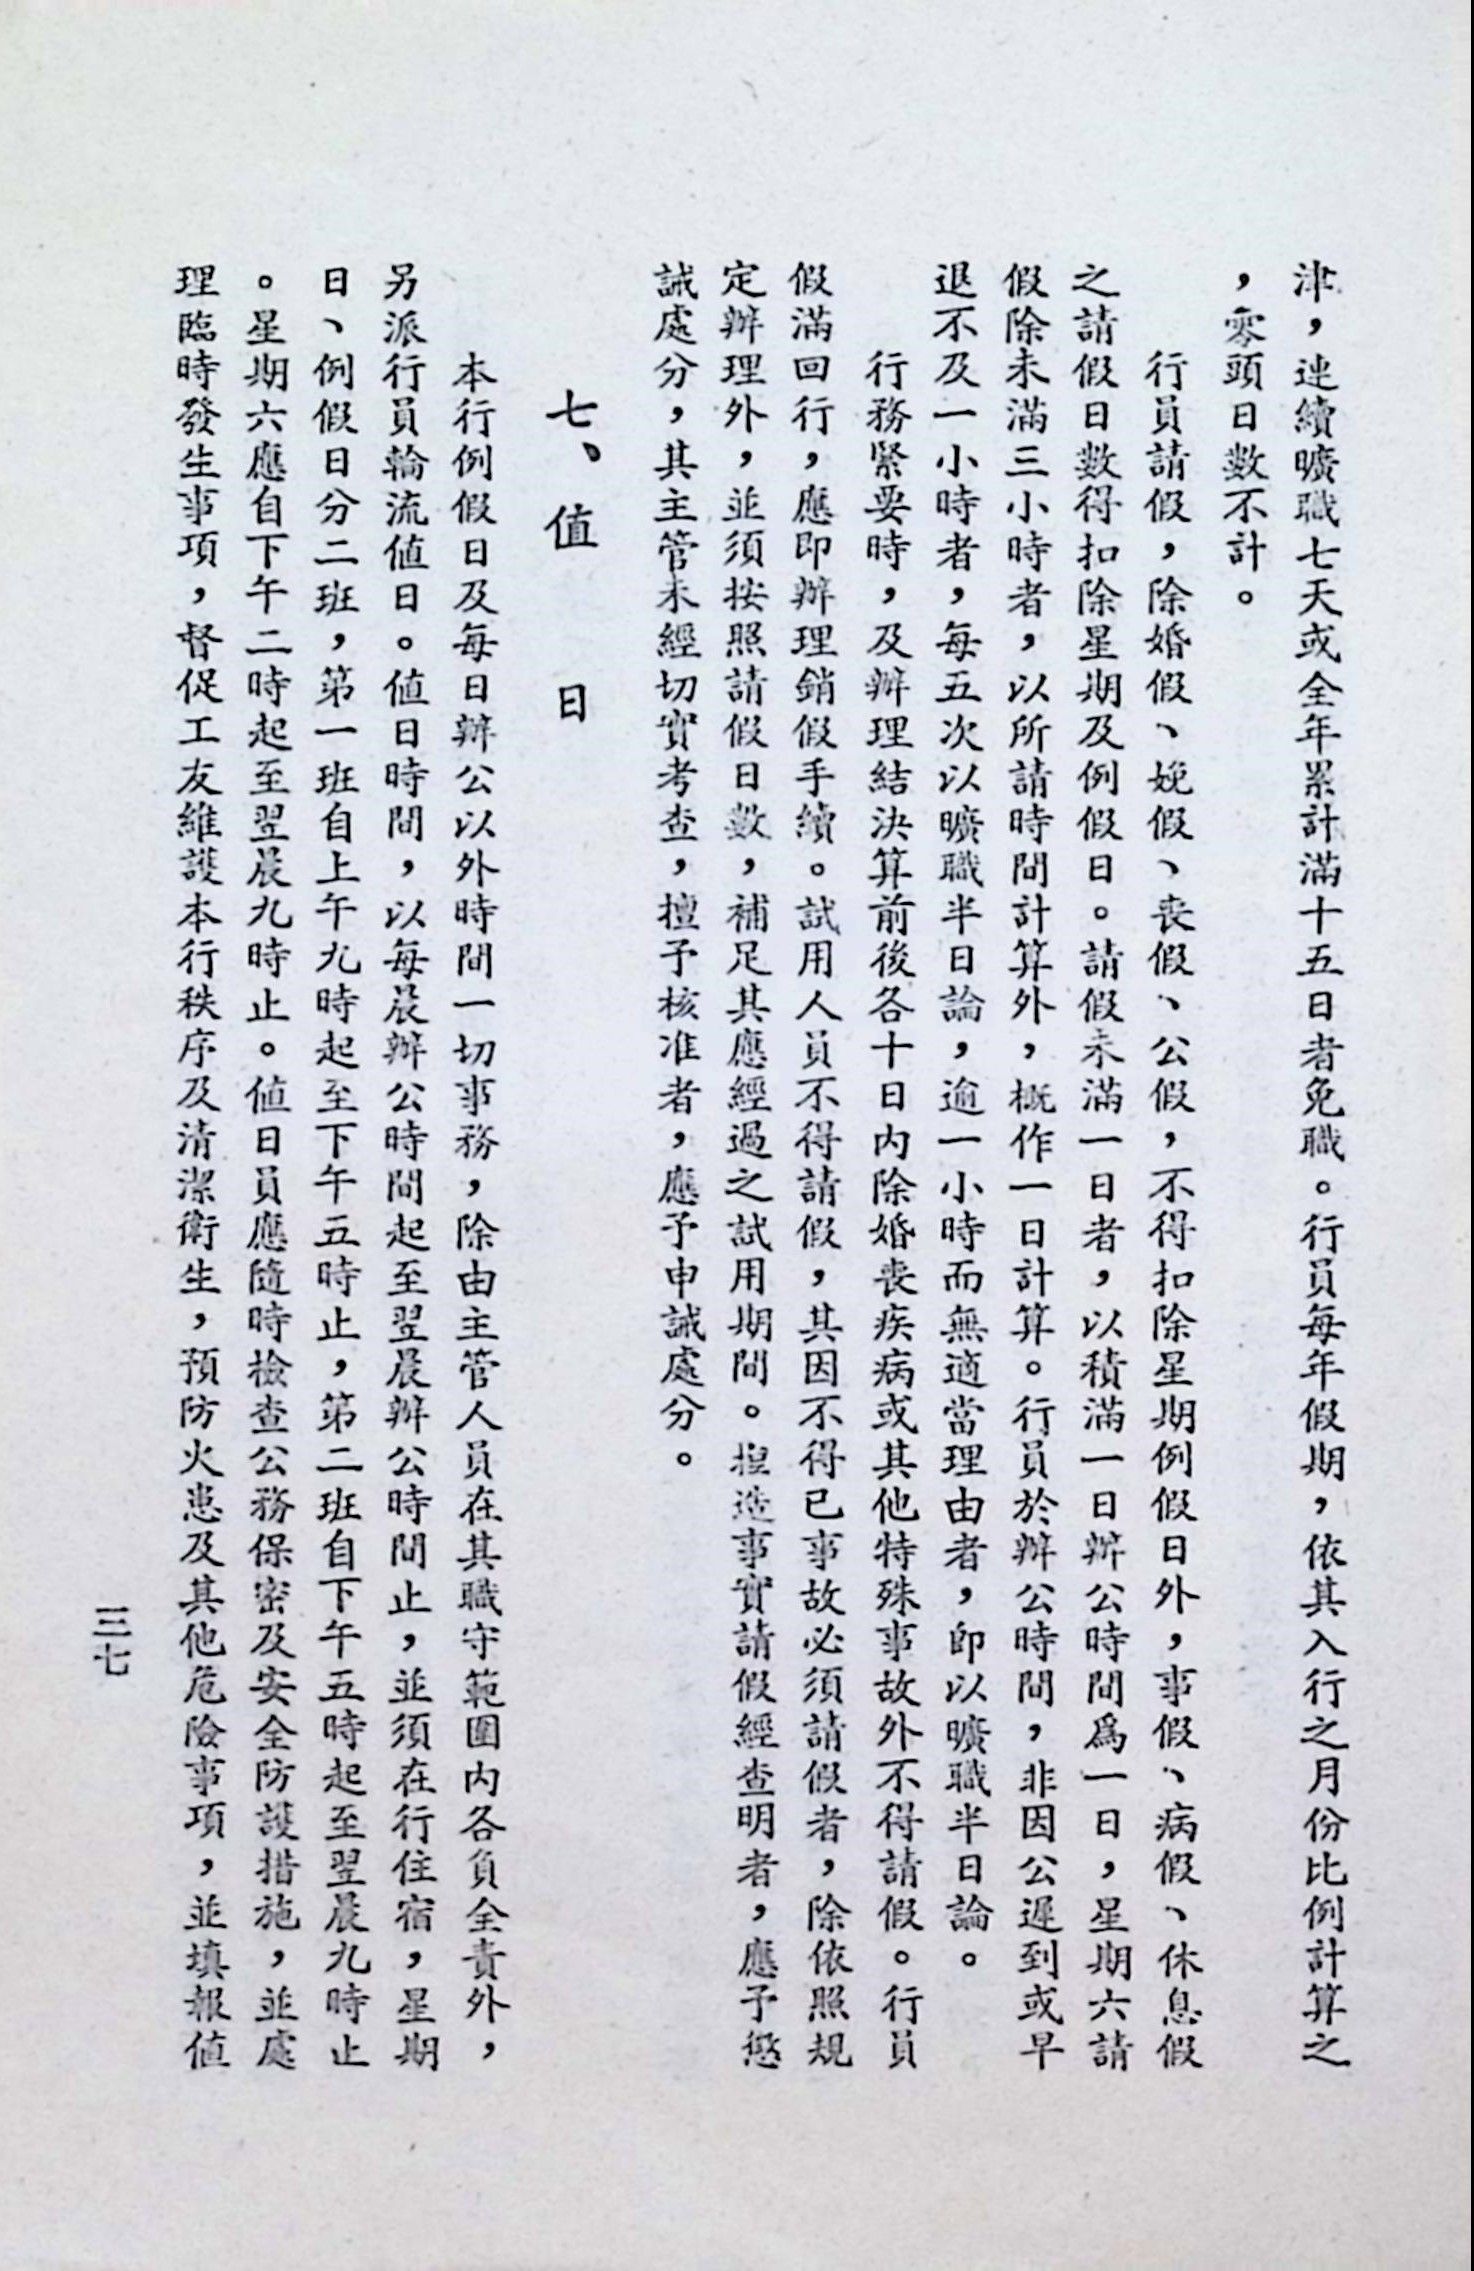 津，連續曠職七天或全年累計滿十五日者免職。行員每年假期，依其入行之月份比例計算之
，零頭日數不計。
行員請假，除婚假、娩假、喪假、公假，不得扣除星期例假日外，事假、病假、休息假
之請假日數得扣除星期及例假日。請假未滿一日者，以積滿一日辦公時間爲一日，星期六請
假除未滿三小時者，以所請時間計算外，概作一日計算。行員於辦公時間，非因公遲到或早
退不及一小時者，每五次以曠職半日論，逾一小時而無適當理由者，卽以曠職半日論。
行務緊要時，及辦理結決算前後各十日內除婚喪疾病或其他特殊事故外不得請假。行員
假滿回行，應即辦理銷假手續。試用人員不得請假，其因不得已事故必須請假者，除依照規
定辦理外，並須按照請假日數，補足其應經過之試用期間。揑造事實請假經查明者，應予懲
誡處分，其主管未經切實考查，擅予核准者，應予申誡處分。
七、值日
本行例假日及每日辦公以外時間一切事務，除由主管人員在其職守範圍內各負全責外，
另派行員輪流值日。值日時間，以每晨辦公時間起至翌晨辦公時間止，並須在行住宿，星期
日、例假日分二班，第一班自上午九時起至下午五時止，第二班自下午五時起至翌晨九時止
。星期六應自下午二時起至翌晨九時止。值日員應隨時檢查公務保密及安全防護措施，並處
理臨時發生事項，督促工友維護本行秩序及清潔衛生，預防火患及其他危險事項，並填報值
三七